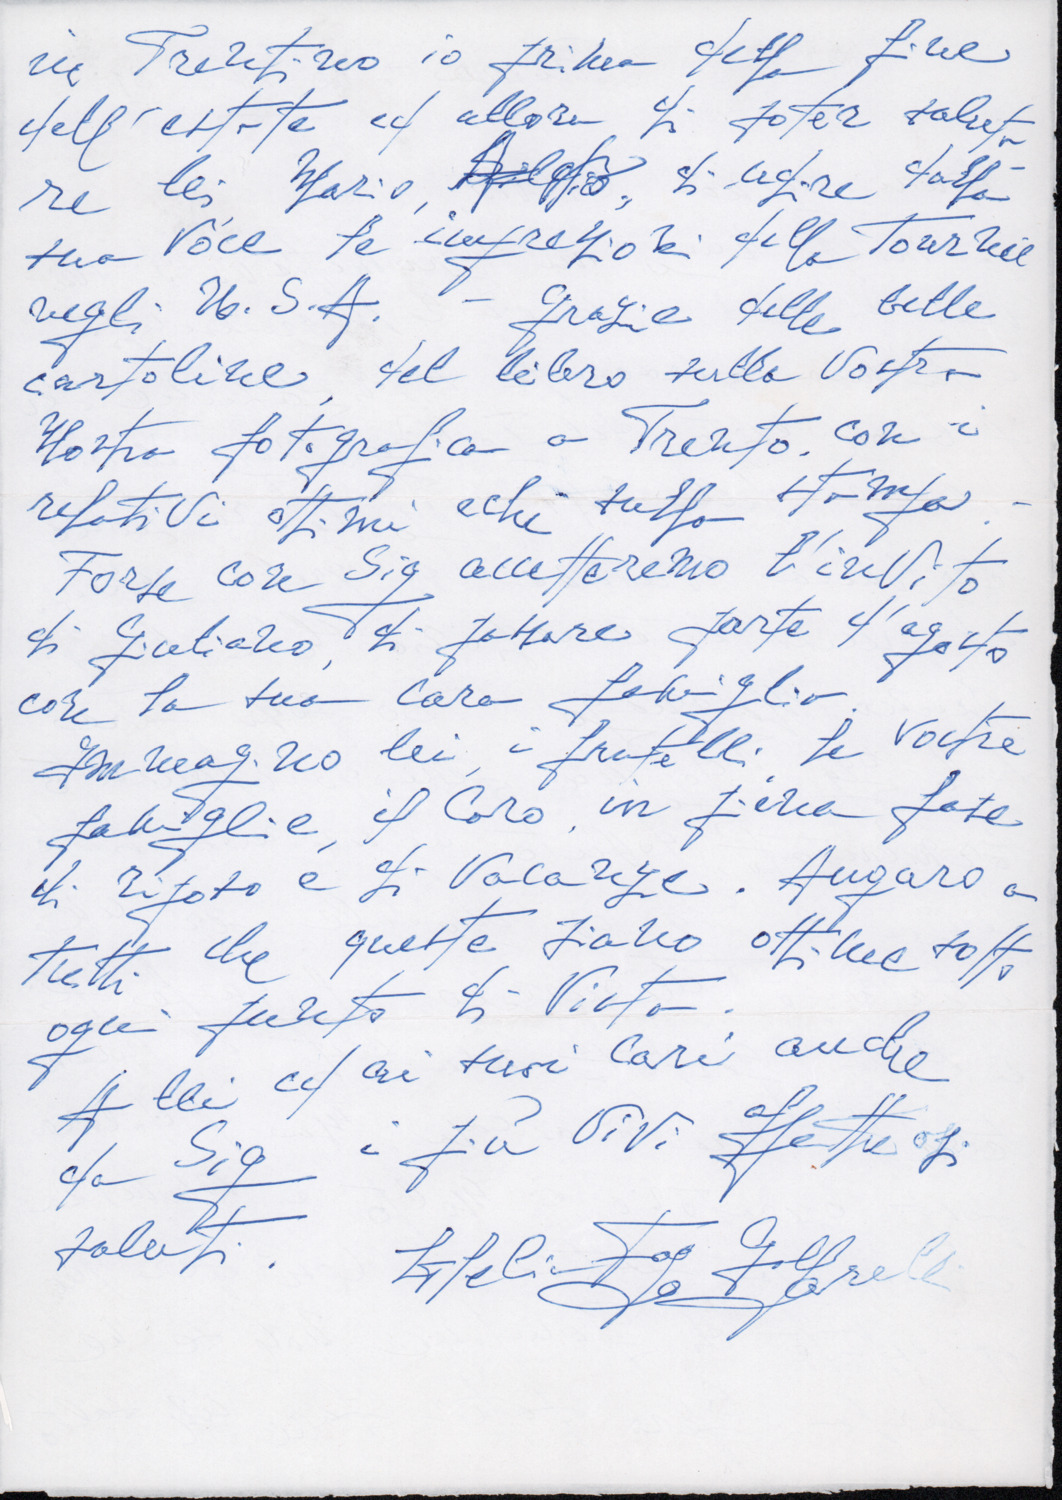 in Trentino io prima della fine
dell'estate ed allora di poter saluta
re lei, Mario, di udire dalla
sua voce le impressioni della Tournée
negli U.S.A. – Grazie delle belle
cartoline, del libro sulla Vostra
Mostra fotografica a Trento. con i
relativi ottimi echi sulla stampa. –
Forse con Sig accetteremo l'invito
di Giuliano, di passare parte d'agosto
con la sua cara famiglia.
Immagino lei, i fratelli le vostre
famiglie, il Coro, in piena fase
di riposo e di vacanze. Auguro a
tutti che queste siano ottime sotto
ogni punto di vista.
A lei ed ai suoi cari anche
da Sig i più vivi affettuosi
saluti.